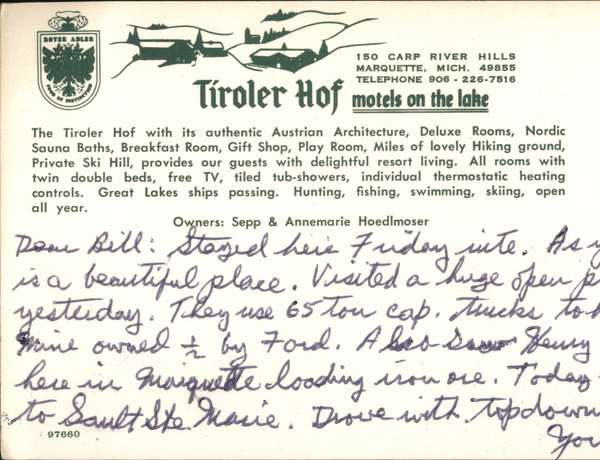 ROTER ADLER
150 CARP RIVER HILLS
MARQUETTE, MICH. 49855
TELEPHONE 906 - 226-7516
Tiroler Hof motels on the lake
The Tiroler Hof with its authentic Austrian Architecture, Deluxe Rooms, Nordic
Sauna Baths, Breakfast Room, Gift Shop, Play Room, Miles of lovely Hiking ground,
Private Ski Hill, provides our guests with delightful resort living. All rooms with
twin double beds, free TV, tiled tub-showers, individual thermostatic heating
controls. Great Lakes ships passing. Hunting, fishing, swimming, skiing, open
all year.
Owners: Sepp & Annemarie Hoedlmoser
Dear Bill: Stayed here Friday nite. As y
is a beautiful place. Visited a huge open p
yesterday. They use 65 ton cap. trucks to h
Mine owned ½ by Ford. Also saw Henry
here in Marquette loading iron ore. Today
to Sault Ste. Marie. Drove with top down
97660
You